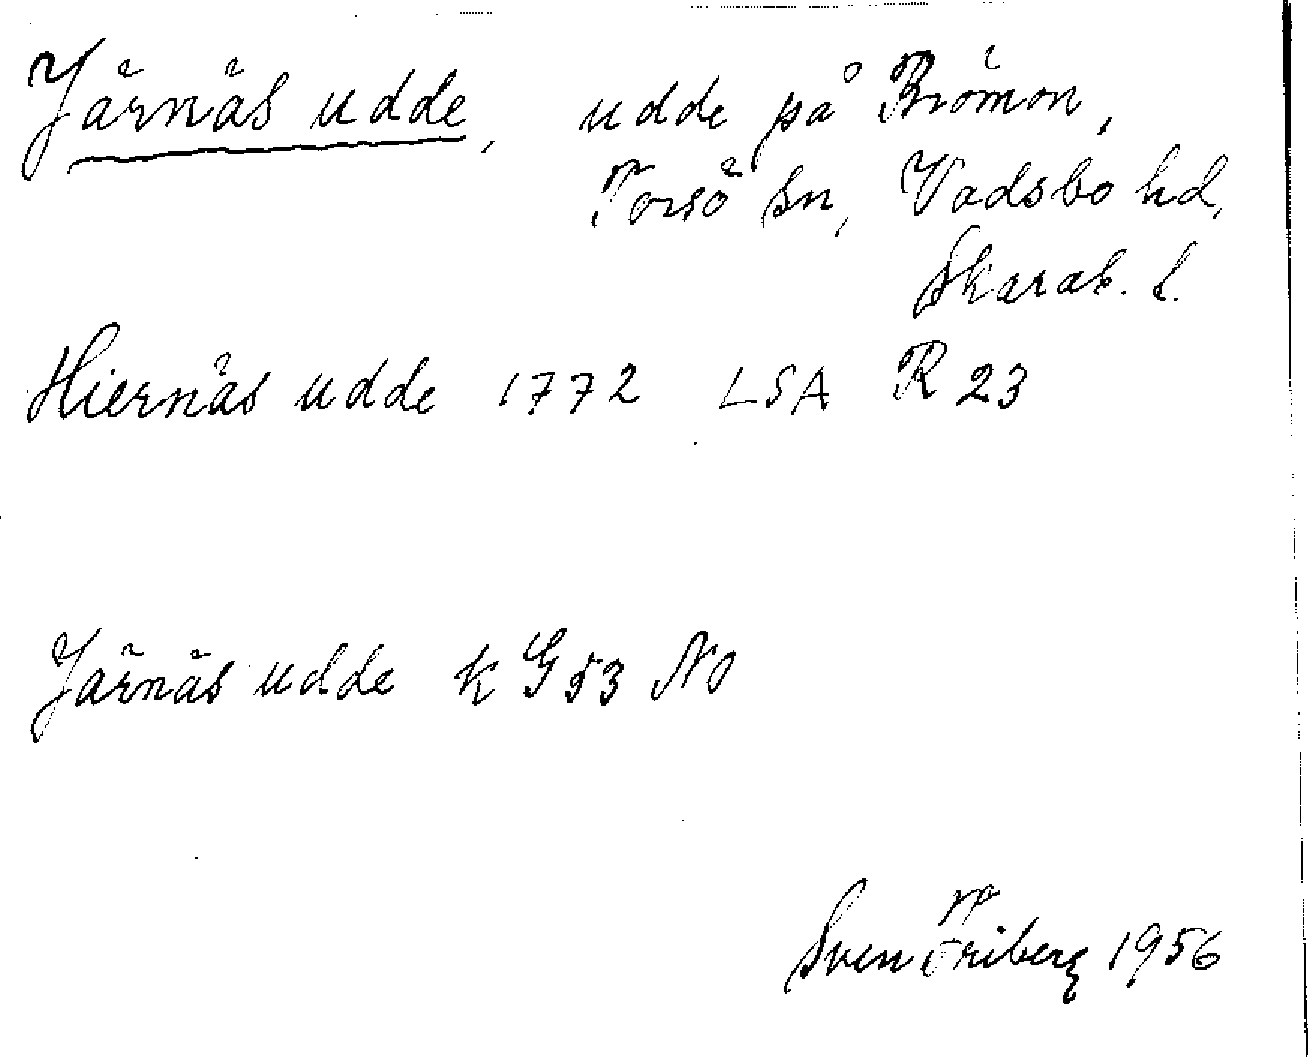 Järnäs udde, udde på Brömon,
Torsö sn, Vadsbo hd,
Skarab. l.
Hiernäs udde 1772 LSA R 23
Järnäs udde k G 53 No
Sven Friberg 1956